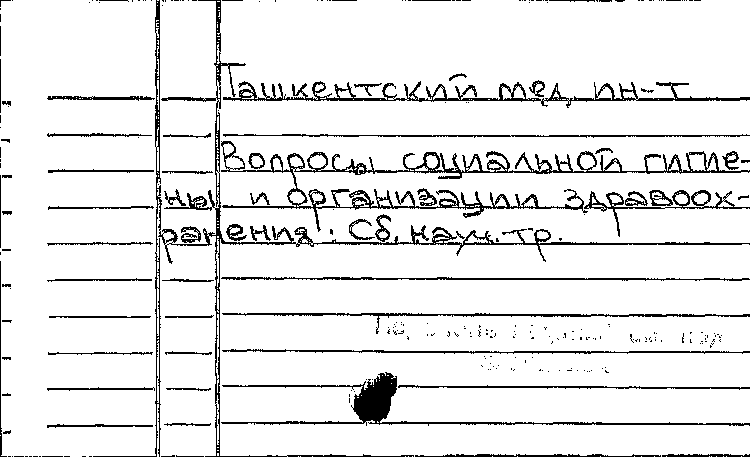 Ташкентский мед. ин-т
Вопросы социальной гигие-
ны и организации здравоох-
ранения : Сб. науч. тр.